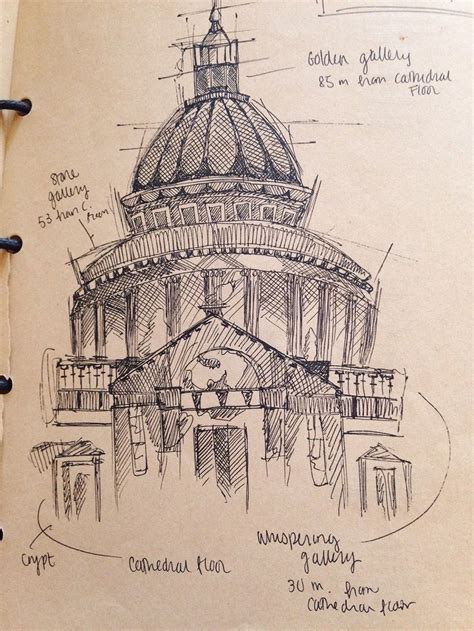 Golden gallery
85 m from Cathedral
Floor
Stone
gallery
53 from C.
Crypt
Cathedral floor
Whispering
gallery
30 m. from
Cathedral floor